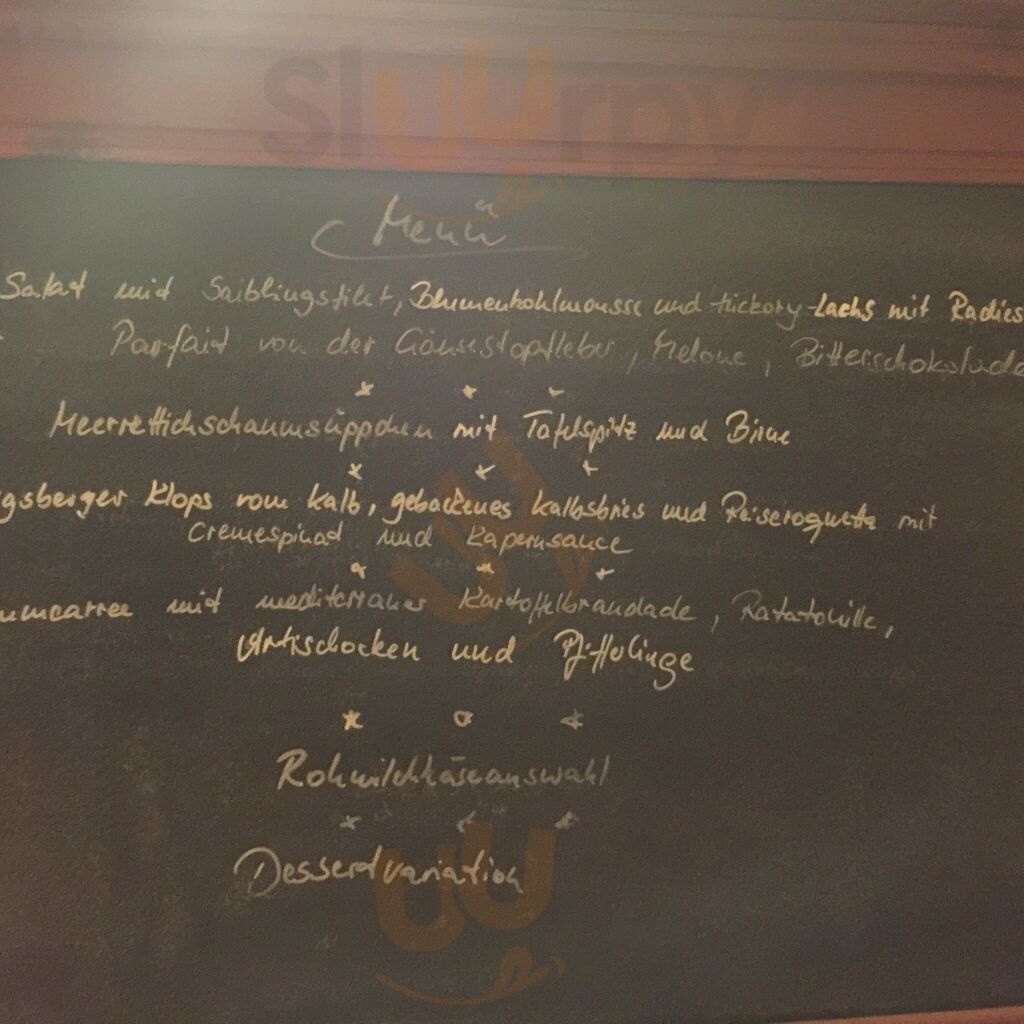 Sluurpy
Menü
Salat mit Saiblingsfilet, Blumenkohlmousse und Hickory-Lachs mit Radies
Parfait von der Gänsestopfleber, Melone, Bitterschokolade
Meerrettichschaumsüppchen mit Tafelspitz und Birne
gsberger Klops vom Kalb, gebackenes Kalbsbries und mit
Cremespinat und Kapernsauce
mmcarree mit mediterranes Kartoffelbrandade, Ratatouille,
Artischocken und Pfifferlinge
Rohmilchkäseauswahl
Dessertvariation